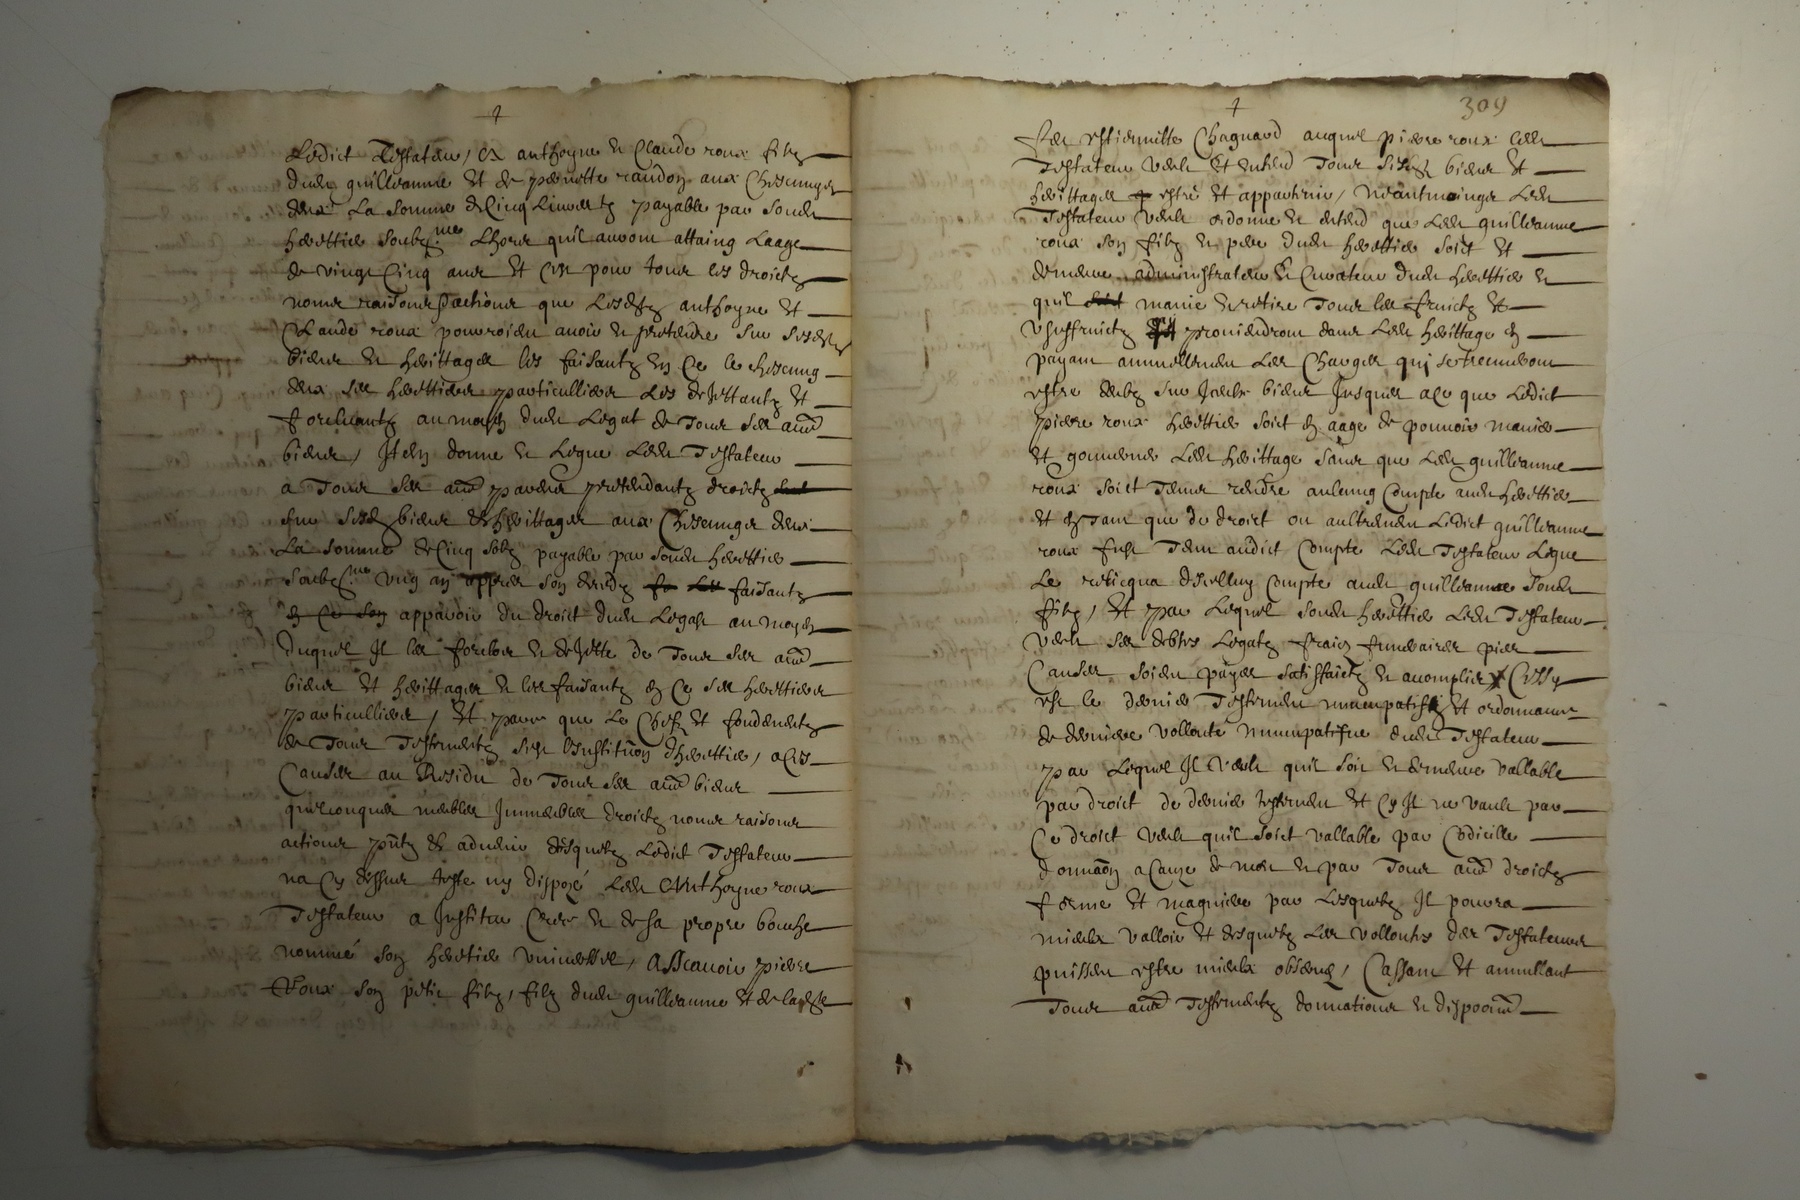 Ledict Testateur, et anthoyne et Claude roux filz
dudict guilleaume et de pernette randon aux Chescungz
deux La somme de Cinq Livres tz payable par sondict
herettier soubz.me Lhors quil auront attaing Laage
de vingt Cinq ans et Ce pour tous les droictz
noms raisons sactions que Lesdictz anthoyne et
Claude roux pourroient avoir et prettendre sur sesdictz
biens et herittages les faisantz en Ce le chescung
deux ses herettiers particulliers Les dejettantz et
forcluantz au moyen dudict Legat de Tous ses autres
biens, Item donne et Legue Ledict Testateur
a Tous ses autres parens prettendantz droictz
sur sesdictz biens et herittages aux Chescungs deux
La somme de Cinq solz payable par sondict herettier
soubz.me ung an appres son deces faisantz
apparoir du droict dudict Legat au moyen
duquel Il les forclos et dejette de Tous ses autres
biens et herittages et les faisantz en Ce ses herettiers
particulliers, Et parce que Le Chefz et fondementz
de Tous Testementz sest linstitution dherettier, a Ces
Causes au Residu de Tous ses autres biens
quelconques meubles Immeubles droictz noms raisons
actions pntz et advenir desquelz Ledict Testateur
na Cy dessus teste ny dispozé Ledict Anthoyne roux
Testateur a Institue Cree et de sa propre bouche
nommé son herettier universel, Asscavoir pierre
Roux son petit filz, filz dudict guilleaume et de
309
feu estiennette Chagnard auquel pierre roux ledict
Testateur veult Et entend Tous sesdictz biens et
herittages estre et appartenir, Neantmoings Ledict
Testateur veult ordonne et entend que Ledict guilleaume
roux son filz et pere dudict herettier soict et
demeure administrateur et Curateur dudict herettier et
quil manie et retire Tous les fruictz et
usuffruictz proviendront dans Ledict herittage en
payant annuellement Les Charges qui se treuveront
estre deubz sur Iceulx biens Jusques a Ce que Ledict
pierre roux herettier soict en aage de pouvoir manier
et gouverner Ledict herittage sans que Ledict guilleaume
roux soict Tenus rendre aulcung Compte audict herettier
et en Tant que de droict ou aultrement Ledict guilleaume
roux fust Tenu audict Compte Ledict Testateur Legue
Le relicqua dicelluy Compte audict guilleaume sondict
filz, Et par Lequel sondict herettier Ledict Testateur
veult ses debtes Legatz fraiz funeraires pies
Causes soient payes satisfaictz et acomplies Cecy
est le dernier Testement nuncupatifz et ordonnance
de derniere vollonte nuncupatifve dudict Testateur
par Lequel Il veult quil soit et demeure vallable
par droict de dernier testement et Cy Il ne vault par
Ce droict veult quil soict vallable par Codicille
donnaon a Cauze de mort et par Tous autres droictz
forme et magniere par Lesquelz Il pourra
mieulx valloir et desquelz Les vollontes des Testateurs
puissent estre mieulx observes, Cassant et annullant
Tous autres Testementz donnations et dispoons